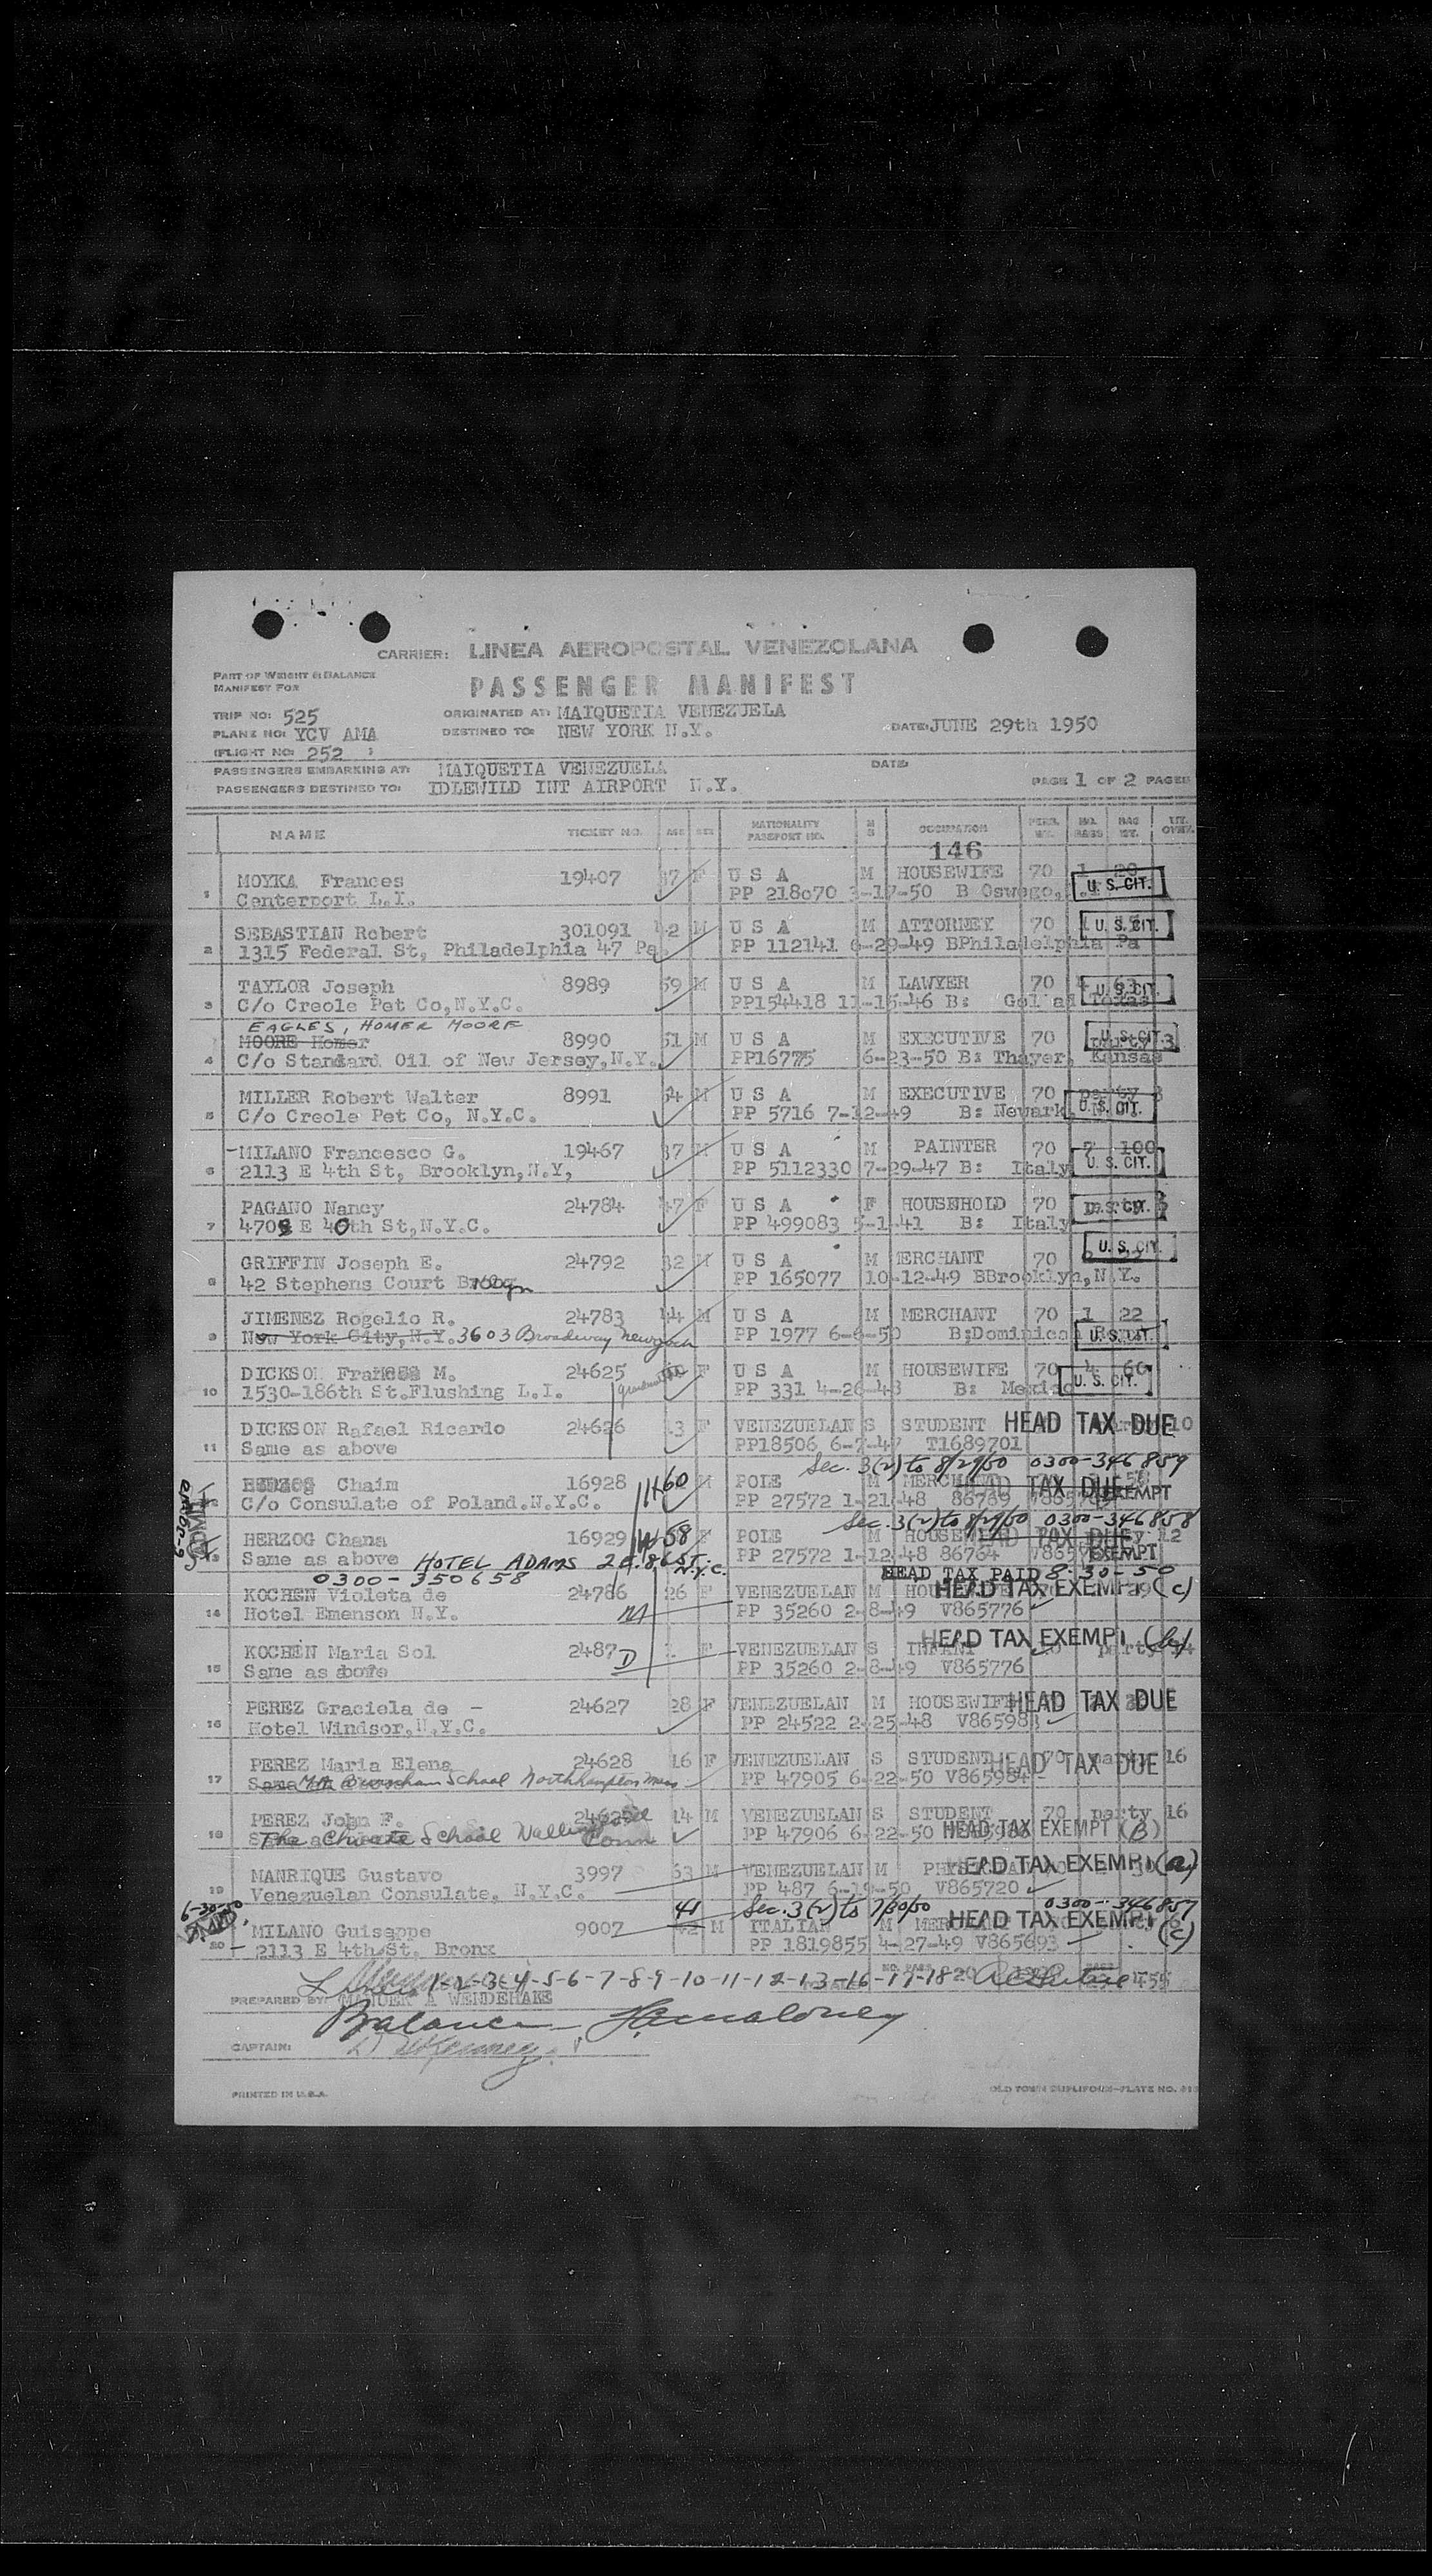 CARRIER: LINEA AEROPOSTAL VENEZOLANA
PART OF WEIGHT & BALANCE
MANIFEST FOR
PASSENGER MANIFEST
TRIP NO: 525
ORIGINATED AT: MAIQUETIA VENEZUELA
PLANE NO: YCV AMA
DESTINED TO: NEW YORK N.Y.
DATE: JUNE 29th 1950
(FLIGHT NO: 252 )
PASSENGERS EMBARKING AT: MAIQUETIA VENEZUELA
DATE:
PASSENGERS DESTINED TO: IDLEWILD INT AIRPORT N.Y.
PAGE 1 OF 2 PAGES
NAME TICKET NO. AGE SEX NATIONALITY PASSPORT NO. M S OCCUPATION PERS. WT. NO. BAGS BAG WT. UT. OVER.
146
1 MOYKA Frances 19407 37 F U S A M HOUSEWIFE 70 1 20
Centerport L.I. PP 218070 3-17-50 B Oswego, U. S. CIT.
2 SEBASTIAN Robert 301091 42 M U S A M ATTORNEY 70 U. S. CIT.
1315 Federal St, Philadelphia 47 Pa. PP 112141 6-29-49 BPhiladelphia Pa
3 TAYLOR Joseph 8989 59 M U S A M LAWYER 70 U. S. CIT.
C/o Creole Pet Co,N.Y.C. PP154418 11-15-46 B: Goliad Texas
EAGLES, HOMER MOORE
4 MOORE Homer 8990 51 M U S A M EXECUTIVE 70 party 3 U. S. CIT.
C/o Standard Oil of New Jersey,N.Y. PP16775 6-23-50 B: Thayer, Kansas
5 MILLER Robert Walter 8991 M U S A M EXECUTIVE 70 party 3
C/o Creole Pet Co, N.Y.C. PP 5716 7-12-49 B: Newark, U. S. CIT.
6 -MILANO Francesco G. 19467 37 M U S A M PAINTER 70 7 100
2113 E 4th St, Brooklyn,N.Y, PP 5112330 7-29-47 B: Italy U. S. CIT.
7 PAGANO Nancy 24784 47 F U S A F HOUSEHOLD 70 U. S. CIT.
4708 E 40th St,N.Y.C. PP 499083 5-1-41 B: Italy
8 GRIFFIN Joseph E. 24792 32 M U S A MERCHANT 70 U. S. CIT.
42 Stephens Court Bklyn PP 165077 10-12-49 BBrooklyn,N.Y.
9 JIMENEZ Rogelio R. 24783 44 M U S A M MERCHANT 70 1 22
New York City,N.Y. 3603 Broadway New York PP 1977 6-6-50 B:Dominican U. S. CIT.
10 DICKSON Frances M. 24625 F U S A M HOUSEWIFE 70 4 60
1530-186th St.Flushing L.I. PP 331 4-26-48 B: Mexico U. S. CIT.
11 DICKSON Rafael Ricardo 24626 13 F VENEZUELAN S STUDENT HEAD TAX DUE 10
Same as above PP18506 6-7-47 T1689701
Sec. 3(2) to 8/29/50 0300-346859
12 HERZOG Chaim 16928 60 M POLE M MERCHANT HEAD TAX DUE
C/o Consulate of Poland.N.Y.C. PP 27572 1-21-48 86769 EXEMPT
Sec. 3(2) to 8/29/50 0300-346858
13 HERZOG Chana 16929 58 F POLE M HOUSEWIFE HEAD TAX DUE 12
Same as above HOTEL ADAMS 2 E. 86 ST. N.Y.C. PP 27572 1-12-48 86764 EXEMPT
0300-350658 HEAD TAX PAID 8-30-50
14 KOCHEN Violeta de 24786 26 F VENEZUELAN M HEAD TAX EXEMPT (c)
Hotel Emenson N.Y. PP 35260 2-8-49 V865776
HEAD TAX EXEMPT (b)
15 KOCHEN Maria Sol 2487 D F VENEZUELAN S INFANT party 14
Same as above PP 35260 2-8-49 V865776
16 PEREZ Graciela de - 24627 28 F VENEZUELAN M HOUSEWIFE HEAD TAX DUE
Hotel Windsor,N.Y.C. PP 24522 2-25-48 V86598
17 PEREZ Maria Elena 24628 16 F VENEZUELAN S STUDENT 70 16 HEAD TAX DUE
School Northhampton Mass PP 47905 6-22-50 V865984
18 PEREZ John F. 14 M VENEZUELAN S STUDENT 70 party 16
The Choate School Conn PP 47906 6-22-50 HEAD TAX EXEMPT (B)
19 MANRIQUE Gustavo 3997 63 M VENEZUELAN M PHYSICIAN HEAD TAX EXEMPT (a)
Venezuelan Consulate, N.Y.C. PP 487 6-19-50 V865720
6-30-50 41 Sec. 3(2) to 7/30/50 0300-346857
20 MILANO Guiseppe 9007 42 M ITALIAN M HEAD TAX EXEMPT (c)
2113 E 4th St. Bronx PP 1819855 4-27-49 V865693
1-2-3-4-5-6-7-8-9-10-11-12-13-16-17-18 20 455
PREPARED BY: MANUEL A WENDEHAKE
Balance
CAPTAIN:
PRINTED IN U.S.A.
OLD TOWN DUPLIFORM-PLATE NO.